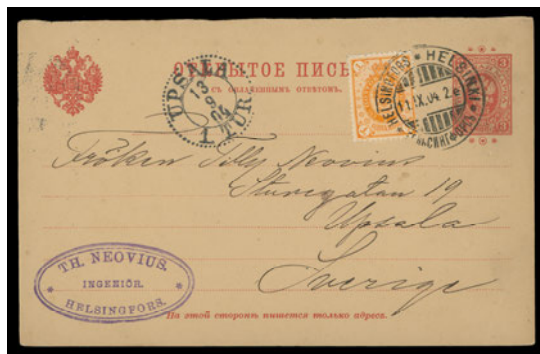 ОТКРЫТОЕ ПИСЬ
СЪ ОПЛАЧЕННЫМЪ ОТВѢТОМЪ.
UPSALA
13
9
04
1 TUR
HELSINGFORS * HELSINKI
11.IX.04. 2.e
3
Fröken Tilly Neovius
Sturegatan 19
Upsala
Sverige
TH. NEOVIUS.
INGENIÖR.
HELSINGFORS.
На этой сторонѣ пишется только адресъ.